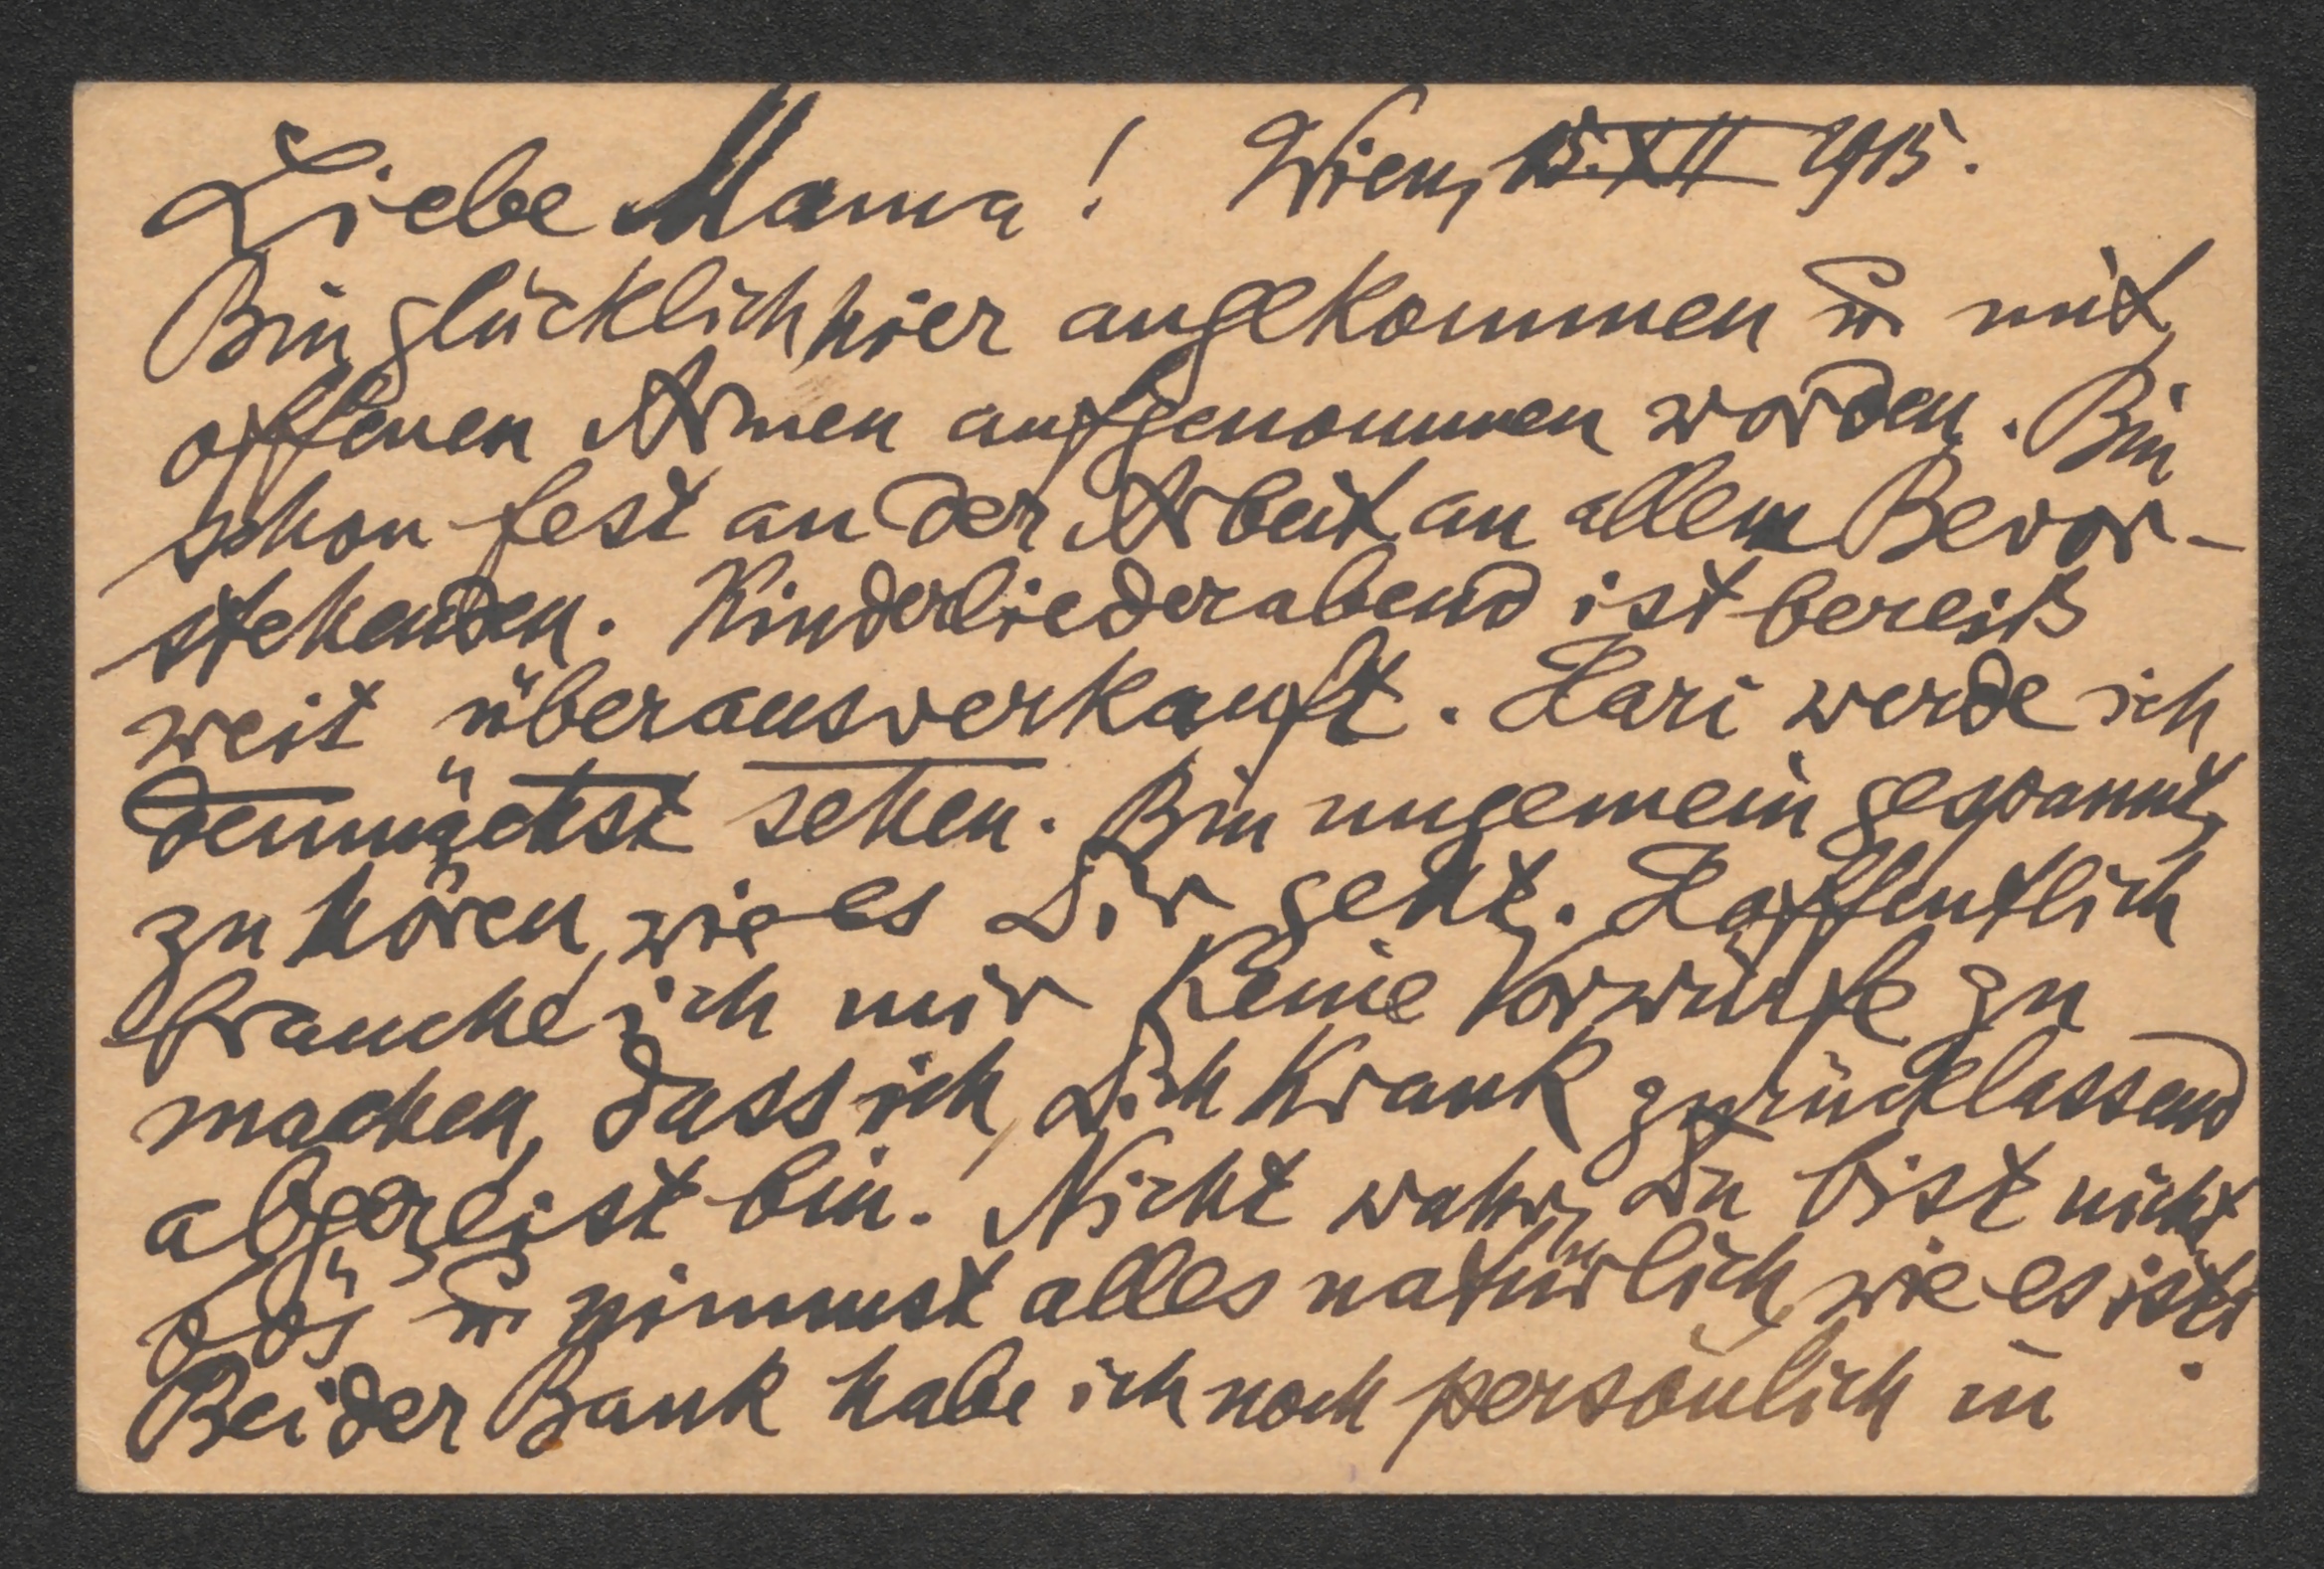 Liebe Mama! Wien, 15. XII 1915.
Bin glücklich hier angekommen u mit
offenen Armen aufgenommen worden. Bin
schon fest an der Arbeit an allem Bevor-
stehenden. Kinderliederabend ist bereits
weit überausverkauft. Hari werde ich
demnächst sehen. Bin ungemein gespannt,
zu hören, wie es Dir geht. Hoffentlich
brauche ich mir keine Vorwürfe zu
machen, dass ich, Dich krank zurücklassend
abgereist bin. Nicht wahr, Du bist nicht
bös u nimmst alles natürlich, wie es ist!
Bei der Bank habe ich noch persönlich in